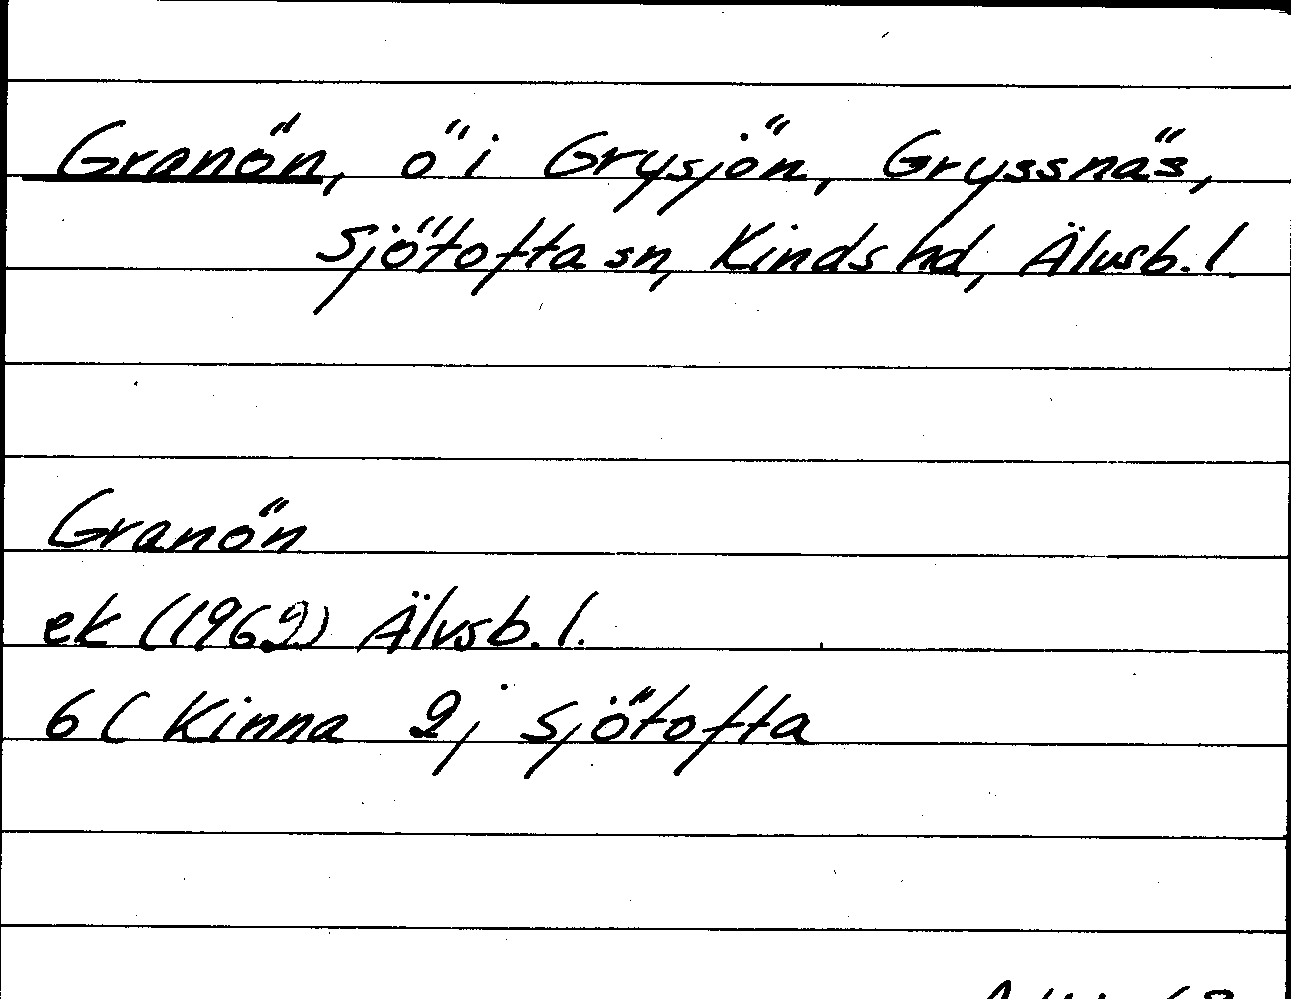 Granön, ö i Grysjön, Gryssnäs,
Sjötofta sn, Kinds hd, Älvsb. l.
Granön
ek (1962) Älvsb. l.
6 C Kinna 2j Sjötofta